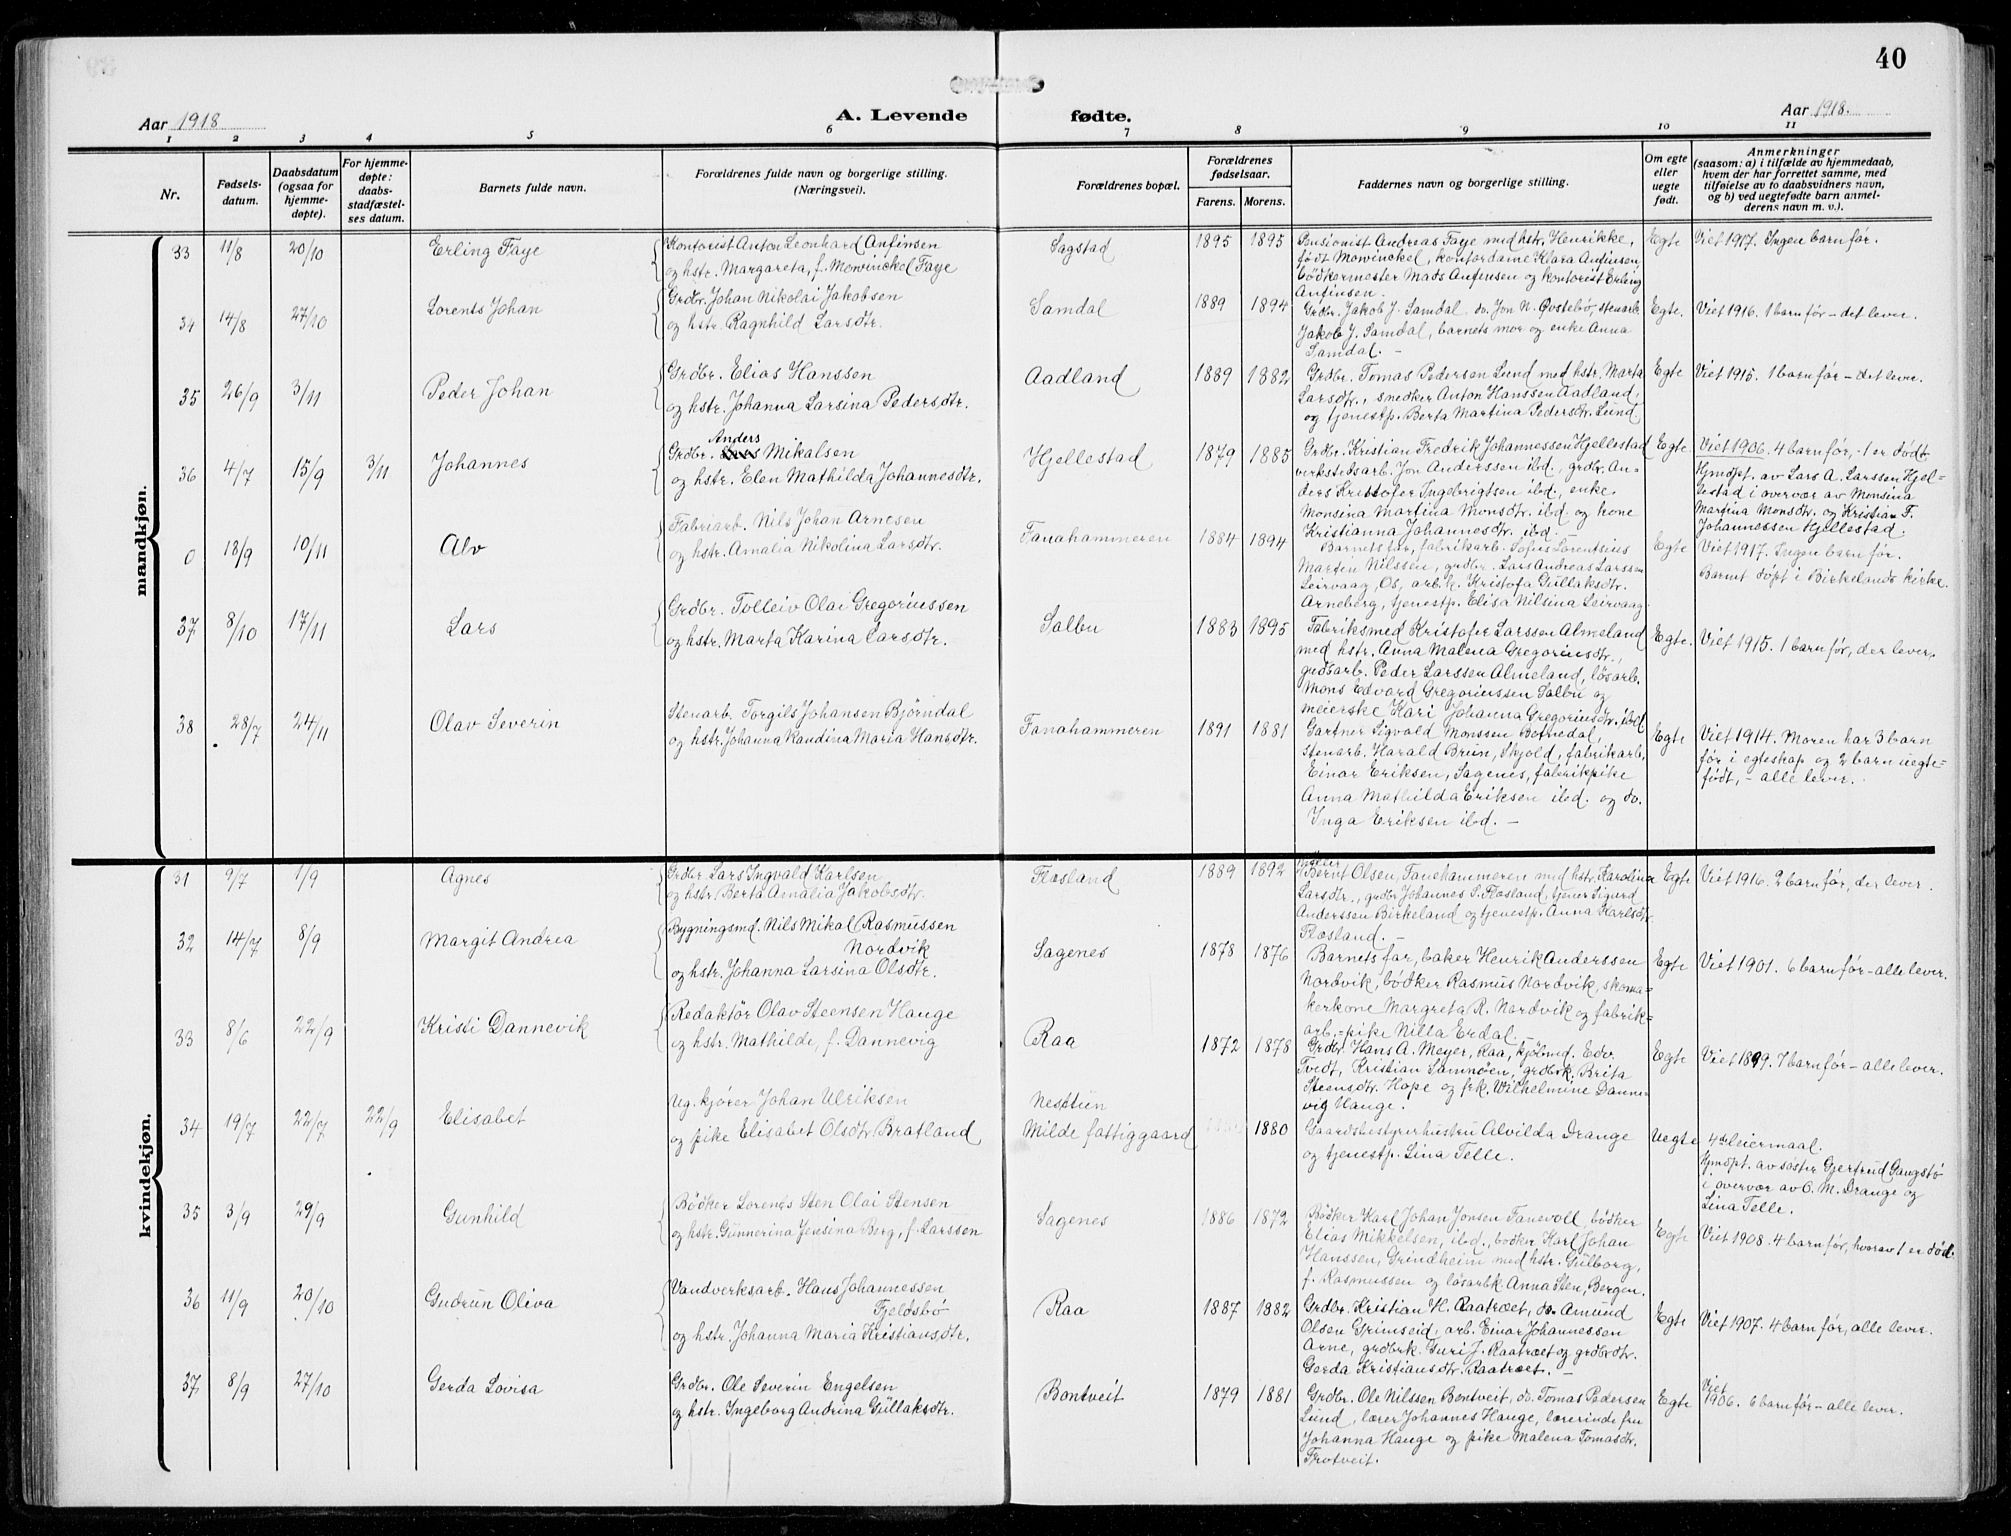 40
Aar 1918
A. Levende fødte.
Aar 1918.
1 2 3 4 5 6 7 8 9 10 11
Nr.
Fødsels-
datum.
Daabsdatum
(ogsaa for
hjemme-
døpte).
For hjemme-
døpte:
daabs-
stadfæstel-
ses datum.
Barnets fulde navn.
Forældrenes fulde navn og borgerlige stilling.
(Næringsvei).
Forældrenes bopæl.
Forældrenes
fødselsaar.
Farens. Morens.
Faddernes navn og borgerlige stilling.
Om egte
eller
uegte
født.
Anmerkninger
(saasom: a) i tilfælde av hjemmedaab,
hvem der har forrettet samme, med
tilføielse av to daabsvidners navn,
og b) ved uegtefødte barn anmel-
derens navn m. v.).
mandkjøn.
33 11/8 20/10 Erling Faye
Kontorist Anton Leonhard Anfinsen
og hstr. Margareta, f. Mowinckel Faye
Sagstad 1895 1895
Pensionist Andreas Faye med hstr. Henrikke,
født Mowinckel, kontordame Klara Anfinsen,
bødkermester Mads Anfinsen og kontorist Erling
Anfinsen.
Egte Viet 1917. Ingen barn før.
34 14/8 27/10 Lorents Johan
Grdbr. Johan Nikolai Jakobsen
og hstr. Ragnhild Larsdtr.
Samdal 1889 1894
Grdbr. Jakob J. Samdal, do. Jon N. Øvstebø, stenarb.
Jakob J. Samdal, barnets mor og enke Anna
Samdal. –
Egte. Viet 1916. 1 barn før – det lever.
35 26/9 3/11 Peder Johan
Grdbr. Elias Hanssen
og hstr. Johanna Larsina Pedersdtr.
Aadland 1889 1882
Grdbr. Tomas Pedersen Lund med hstr. Marta
Larsdtr., snedker Anton Hanssen Aadland,
og tjenestp. Berta Martina Pedersdtr. Lund
Egte Viet 1915. 1 barn før – det lever.
36 4/7 15/9 3/11 Johannes
Anders
Grdbr. Mikalsen
og hstr. Elen Mathilda Johannesdtr.
Hjellestad 1879 1885
Grdbr. Kristian Fredrik Johannessen Hjellestad
verkstedsarb. Jon Anderssen ibd., grdbr. An-
ders Kristofer Ingebrigtsen ibd., enke
Monsina Martina Monsdtr. ibd og kone
Kristianna Johannesdtr. ibd.
Egte. Viet 1906. 4 barn før, – 1 er dødt
Hjmdpt. av Lars A. Larssen Hjel-
lestad i overvær av Monsina
Martina Monsdtr. og Kristian F.
Johannessen Hjellestad.
0 18/9 10/11 Alv
Fabriarb. Nils Johan Arnesen
og hstr. Amalia Nikolina Larsdtr.
Fanahammeren 1884 1894
Barnets far, fabrikarb. Sofus Lorentsius
Marten Nilssen, grdbr. Lars Andreas Larssen
Leirvaag, Os, arb.k. Kristofa Gullaksdtr.
Arneberg, tjenestp. Elisa Nilsina Leirvaag
Egte Viet 1917. Ingen barn før.
Barnet døpt i Birkelands kirke.
37 8/10 17/11 Lars
Grdbr. Tolleiv Olai Gregoriussen
og hstr. Marta Karina Larsdtr.
Salbu 1883 1895
Fabriksmed Kristofer Larssen Almeland
med hstr. Anna Malena Gregoriusdtr.,
gudsarb. Peder Larssen Almeland, løsarb.
Mons Edvard Gregoriussen Salbu og
meierske Kari Johanna Gregoriusdtr. ibd
Egte. Viet 1915. 1 barn før, der lever.
38 28/7 24/11 Olav Severin
Stenarb. Torgils Johansen Bjørndal
og hstr. Johanna Randina Maria Hansdtr.
Fanahammeren 1891 1881
Gartner Sigvald Monssen Botnedal,
stenarb. Harald Brun, Skjold, fabrikarb.
Einar Eriksen, Sagenes, fabrikpike
Anna Mathilda Eriksen ibd. og do.
Inga Eriksen ibd. –
Egte Viet 1914. Moren har 3 barn
før i egteskap og 2 barn uegte-
født, – alle lever.
kvindekjøn.
31 9/7 1/9 Agnes
Grdbr. Lars Ingvald Karlsen
og hstr. Berta Amalia Jakobsdtr.
Flesland 1889 1892
Bernt Olsen, Fanehammeren med hstr. Karolina
Larsdtr., grdbr Johannes S. Flesland, tjener Sigurd
Anderssen Birkeland og tjenestp. Anna Karlsdtr.
Flesland. –
Egte Viet 1916. 2 barn før, der lever.
32 14/7 8/9 Margit Andrea
Bygningsmd. Nils Mikal Rasmussen
Nordvik
og hstr. Johanna Larsina Olsdtr.
Sagenes 1878 1876
Barnets far, baker Henrik Anderssen
Nordvik, bødker Rasmus Nordvik, skoma-
kerkone Margreta R. Nordvik og fabrik-
arb.-pike Nilla Erdal. –
Egte Viet 1901. 6 barn før – alle lever.
33 8/6 22/9 Kristi Dannevik
Redaktør Olav Steensen Hauge
og hstr. Mathilde, f. Dannevig
Raa 1872 1878
Grdbr. Hans A. Meyer, Raa, kjøbmd. Edv.
Tvedt, Kristian Samnøen, grdbrk. Brita
Steensdtr. Hope og frk. Wilhelmine Danne-
vig Hauge.
Egte Viet 1899. 7 barn før – alle lever.
34 19/7 22/7 22/9 Elisabet
Ug. kjører Johan Ulriksen
og pike Elisabet Olsdtr Bratland
Nesttun
Milde fattiggaard 1880
Gaardsbestyrerhustru Alvilda Drange
og tjenestp. Lina Telle.
Uegte 4de leiermaal.
Hjmdpt. av søster Gjertrud Gangstø
i overvær av O. M. Drange og
Lina Telle.
35 3/9 29/9 Gunhild
Bødker Lorents Sten Olai Stensen
og hstr. Gunnerina Jensina Berg, f. Larssen
Sagenes 1886 1872
Bødker Karl Johan Jonsen Fanevoll, bødker
Elias Mikkelsen, ibd., bødker Karl Johan
Hanssen, Grindheim med hstr. Gulborg,
f. Rasmussen og løsarbk Anna Sten, Bergen.
Egte Viet 1908. 4 barn før, hvorav 1 er død.
36 11/9 20/10 Gudrun Oliva
Vandverksarb. Hans Johannessen
Fjeldsbø
og hstr. Johanna Maria Kristiansdtr.
Raa 1887 1882
Grdbr. Kristian H. Raatræet, do. Amund
Olsen Grimseid, arb. Einar Johannessen
Arne, grdbrk. Guri J. Raatræet og grdbrdtr.
Gerda Kristiansdtr. Raatræet. –
Egte Viet 1907. 4 barn før, alle lever.
37 8/9 27/10 Gerda Lovisa
Grdbr. Ole Severin Engelsen
og hstr. Ingeborg Andrina Gullaksdtr.
Bontveit 1879 1881
Grdbr. Ole Nilssen Bontveit, do. Tomas Pedersen
Lund, lærer Johannes Hauge, lærerinde fru
Johanna Hauge og pike Malena Tomasdtr.
Frotveit.
Egte Viet
1906. 6 barn før – alle lever.